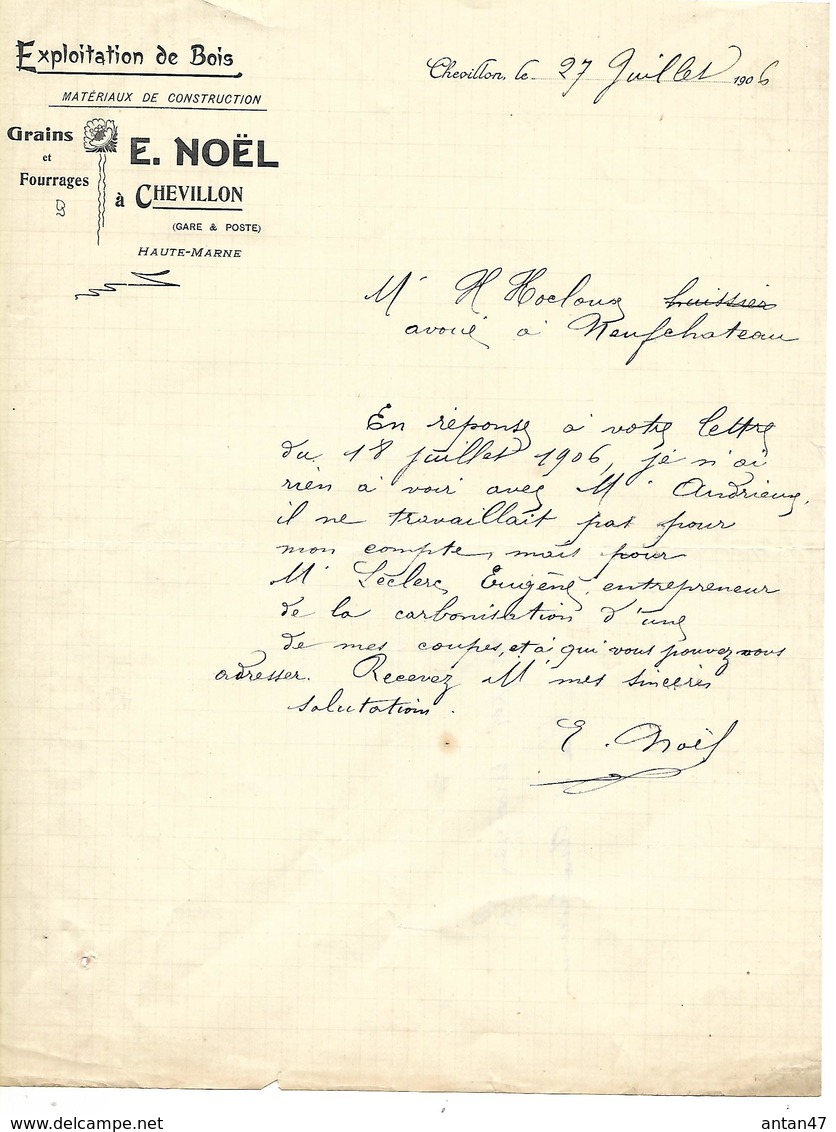 Exploitation de Bois
MATÉRIAUX DE CONSTRUCTION
Grains
et
Fourrages
E. NOËL
à CHEVILLON
(GARE & POSTE)
HAUTE-MARNE
Chevillon, le 27 Juillet 1906
Mr H
avoué à Neufchateau
En réponse à votre lettre
du 18 juillet 1906, je n'ai
rien à voir avec Mr Andrieux,
il ne travaillait pas pour
mon compte, mais pour
Mr Leclerc Eugène, entrepreneur
de la carbonisation d'une
de mes coupes, et à qui vous pouvez vous
adresser. Recevez Mr mes sincères
salutations.
E. Noël
www.delcampe.net
antan47